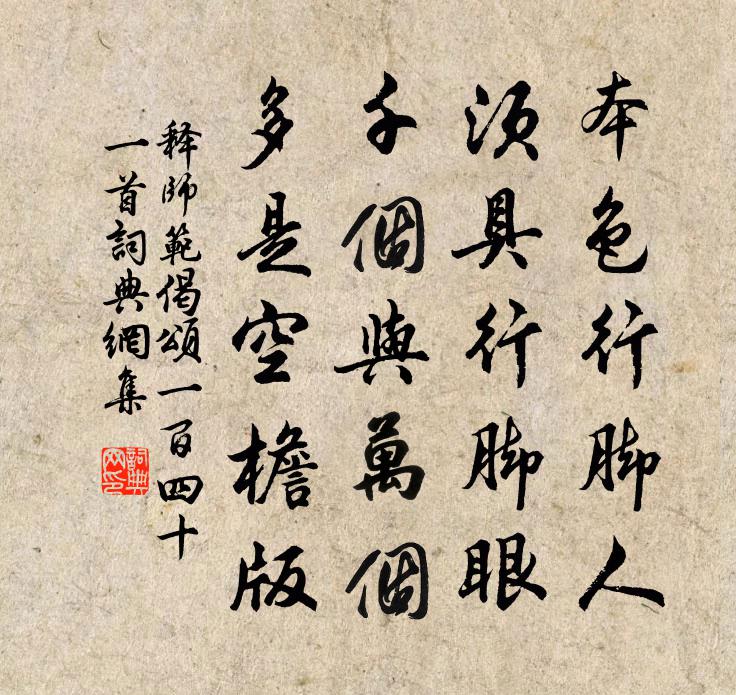 本色行脚人
須具行脚眼
千個與萬個
多是空檐版
释師範偈頌一百四十
一首詞典網集
詞典
网印